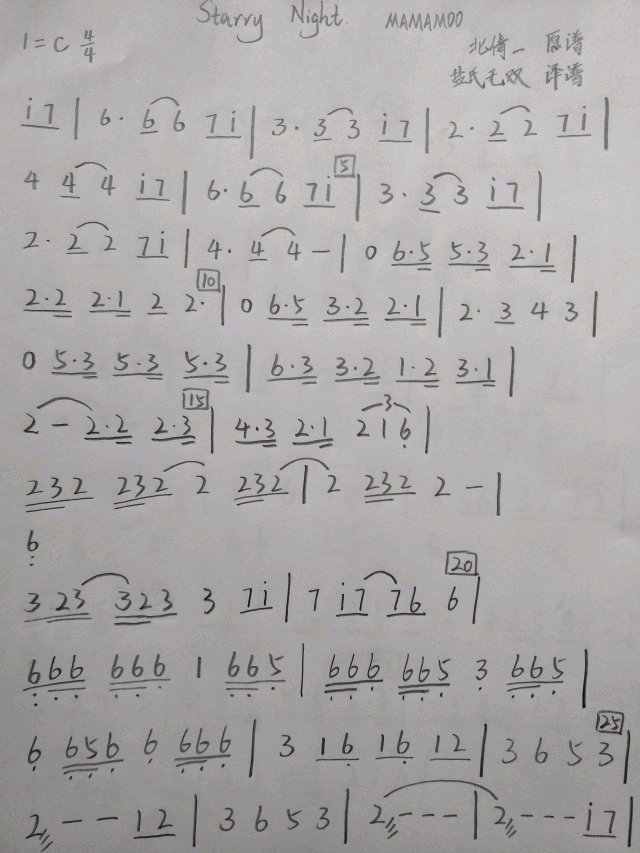 Starry Night. MAMAMOO
1=C 4/4
北倚一 原谱
盐氏无双 译谱
i7 | 6· 6 6 7i | 3· 3 3 i7 | 2· 2 2 7i |
4 4 4 i7 | 6· 6 6 7i 5 | 3· 3 3 i7 |
2· 2 2 7i | 4· 4 4 - | 0 6·5 5·3 2·1 |
2·2 2·1 2 2· 10 | 0 6·5 3·2 2·1 | 2· 3 4 3 |
0 5·3 5·3 5·3 | 6·3 3·2 1·2 3·1 |
2 - 2·2 2·3 15 | 4·3 2·1 3 2 1 6 |
232 232 2 232 | 2 232 2 - |
6
3 23 323 3 7i | 7 i7 76 6 20 |
666 666 1 665 | 666 665 3 665 |
6 656 6 666 | 3 16 16 12 | 3 6 5 3 25 |
2 - - 12 | 3 6 5 3 | 2 - - - | 2 - - - i7 |